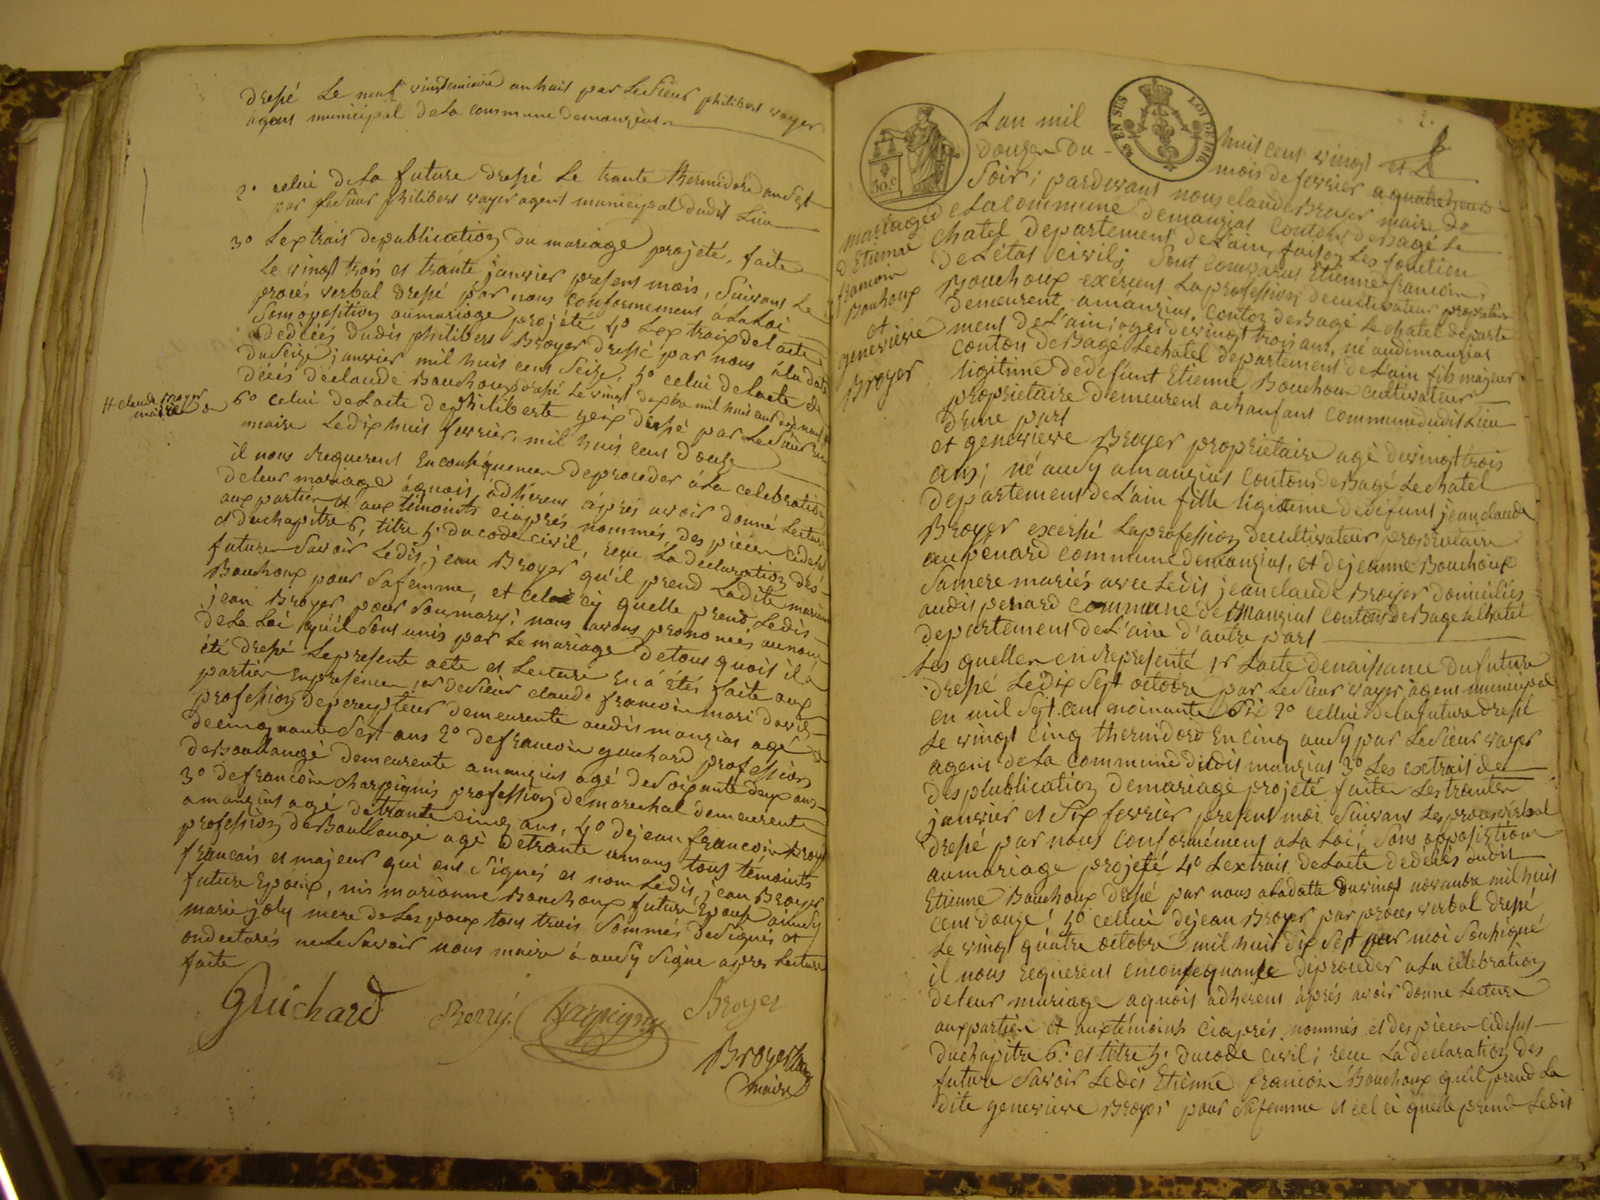 dressé Le neuf vindemiere an huit par Le Sieur philibert voyer
agent municipal de La commune de manziat
2° celui de La future dressé Le trante thermidor an Sept
par Le Sieur philibert voyer agent municipal dudit Lieu
3° L'extrait de publication du mariage projeté, faite
Le vingt trois et trante janvier present mois, Suivant Le
procès verbal dressé par nous conformement à La Loi
Sans oposition au mariage projeté 4° L'extrait de L'acte
de décées dudit philibert Broyer dressé par nous à La date
du Seize janvier mil huit cent Seize, 5° celui de L'acte de
décés de claude Bouchoux dressé Le vingt
# claude Broyer
maire
6° celui de L'acte de philiberte dressé par Le Sieur
maire Le dix huit fevrier mil huit cent douze
il nous requerent En conséquence de proceder à La celebration
de Leur mariage aquoit adhérent après avoir donné Lecture
aux parties et aux témoints ciaprès nommés, des pieces cidessus
et du chapitre 6, titre 5 du code civil, reçu La declaration des
futures Savoir Ledit jean Broyer qu'il prend Ladite marianne
Bouchoux pour Sa femme, et celle cy quelle prend Ledit
jean Broyer pour Son mary; nous avons prononcés au nom
de La Loi qu'il Sont unis par Le mariage de tous quoit il a
été dressé Le presente acte et Lecture En a étés faite aux
parties En presence 1er de Sieur claude francois mari
profession de percepteur demeurente audit manziat agé
de cinquante Sept ans 2° de francois guichard profession
de Boullangé demeurente a manziat agé de Soixante deux ans
3° de francois charpignit profession de marechal demeurente
a manziat agé de trante cinq ans, 4° de jean francois Broyer
profession de Boullangé agé de trante un ans tous témoints
francais et majeur qui ont Signés et nom Ledit jean Broyer
future Epoux, nis marianne Bouchoux future Epouse ainsy
marie joly mere de L'epoux tous trois Sommés de Signes et
ont declarés ne Le Savoir nous maire à ausy Signe apres Lecture
faite
Guichard Berry Harpigny Broyer
Broyer
maire
L'an mil huit cent vingt et
douze du mois de fevrier a quatre heures
Soir; pardevant nous claude Broyer maire de
de La commune demanziat Contons de Bagé Le
chatel departement de L'ain, faisan Les fonction
de L'état civil; Sont comparus Etienne francois
Bouchoux exércent La profession de cultivateur propriétaire
demeurent a manziat Conton de Bagé Le chatel departe
ment de L'ain; agés de vingt trois ans, né audi manziat
conton de Bagé Lechatel departement de L'ain fils majeur
ligitime de defunt Etienne Bouchoux cultivateur
propriétaire demeurent a chanfant commune dudit Lieu
d'une part
mariage
d'Etienne
francois
Bouchoux
et
genevieve
Broyer
et genevieve Broyer propriétaire agé de vingt trois
ans; né ausy a manziat contons de Bagé Lechatel
departement de L'ain fille ligitime de defunt jean claude
Broyer excersé La profession de cultivateur propriétaire
au penard commune demanziat, et de jeanne Bouchoux
Sa mere mariés avec Ledit jean claude Broyer domiciliés
audit penard commune de manziat contons de Bagé le chatel
departement de L'ain d'autre part
Les quelles en represente 1r L'acte de naissance du future
dressé Le dix Sept octobre par Le Sieur voyer agent municipal
en mil Sept cent noinante Six 2° cellui de La future dressé
Le vingt cinq thermidor En cinq ausy par Le Sieur voyer
agent de La commune dudit manziat 3° Les extrait des
des publication de mariage projeté faites Les trantes
janvier et Six fevrier present moi Suivant Les procés verbal
dressé par nous conformément a La Loi, Sans opposition
au mariage projeté 4° L'extrait de L'acte de décés dudit
Etienne Bouchoux dressé par nous a La datte du vingt novembre mil huit
cent douze; 5° cellui de jean Broyer par procés verbal dressé
Le vingt quatre octobre mil huit dix Sept par moi Sousigné
il nous requerent en consequance de proceder a La célébration
de Leur mariage aquois adherent aprés avoir donne Lecture
aux parties et aux témoins ciaprés nommés et des pieces cidesus
du chapitre 6. et titre 5. du code civil; recu La declaration des
future Savoir Ledit Etienne francois Bouchoux qu'il prend La
dite genevieve Broyer pour Sa femme et cel ci quelle prend Ledit